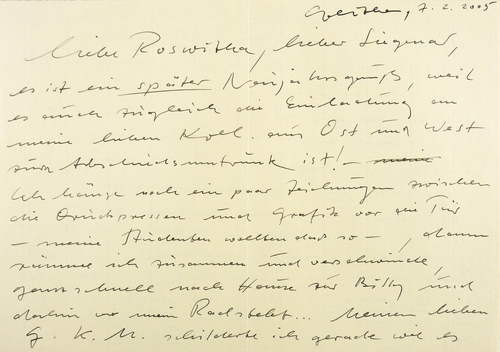 7.2.2005
Liebe Roswitha, lieber Siegmar,
es ist ein später Neujahrsgruß, weil
es auch zugleich die Einladung an
meine lieben Koll. aus Ost und West
zum Abschiedsumtrunk ist! – meine
Ich hänge noch ein paar Zeichnungen zwischen
die Druckpressen und Grafik vor die Tür
– meine Studenten wollten das so –, dann
räume ich zusammen und verschwinde,
ganz schnell nach Hause zur und
dahin wo mein ... Meinen lieben
G. K. M. schilderte ich gerade wie es